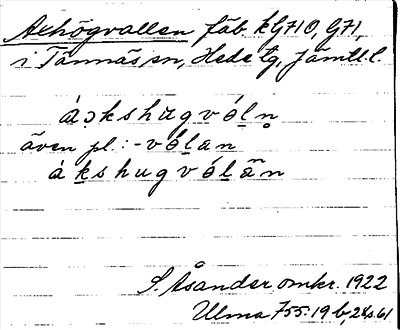 Axhögvallen fäb. kG710, G71,
i Tännäs sn, Hede tg, Jämtl. l.
áɔkshʉgvóln̥
även pl.: -vólan
ákshugvólãn
S. Åsander omkr. 1922
Ulma 755:19 b, s. 61